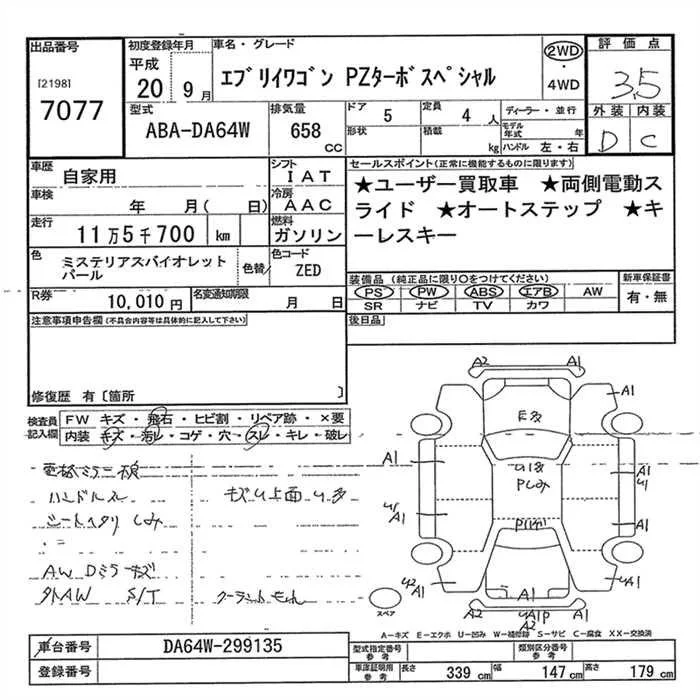 出品番号 初度登録年月 車名・グレード 2WD 評価点
[2198] 7077 平成 20 9月 エブリイワゴン PZターボスペシャル ・ 4WD 3.5
型式 ABA-DA64W 排気量 658 CC ドア 5 定員 4人 ディーラー・並行 外装 内装
形状 積載 kg モデル年式 年 ハンドル 左・右 D C
車歴 自家用 シフト IAT セールスポイント(正常に機能するものに限ります)
車検 年 月( 日) 冷房 AAC ★ユーザー買取車 ★両側電動ス
走行 11万5千700 km 燃料 ガソリン ライド ★オートステップ ★キ
ーレスキー
色 ミステリアスバイオレット
パール 色替 色コード ZED
装備品(純正品に限り○をつけてください) 新車保証書
R券 10,010円 名変通知期限 月 日 PS PW ABS エアB AW 有・無
SR ナビ TV カワ
注意事項申告欄(不具合内容等は具体的に記入して下さい) 後日品
修復歴 有〔箇所 〕
検査員記入欄 FW キズ・飛石・ヒビ割・リペア跡・×要
内装 キズ・汚レ・コゲ・穴・スレ・キレ・破レ
ハンドルス キズU上面U多
シートヘタリ しみ
AW Dミラーキズ
外AW S/T クーラントもれ
A2 A1
A1
E多
U1多
Pしみ
A1
U1
A1
U1
A1
A1
U2
A1
A1
A1
UA1
スペア
A2 UA1P A1
A2
A-キズ E-エクボ U-凹み W-補修跡 S-サビ C-腐食 XX-交換済
車台番号 DA64W-299135 型式指定番号 参考 類別区分番号 参考
登録番号 車庫証明用 参考 長さ 339 cm 幅 147 cm 高さ 179 cm